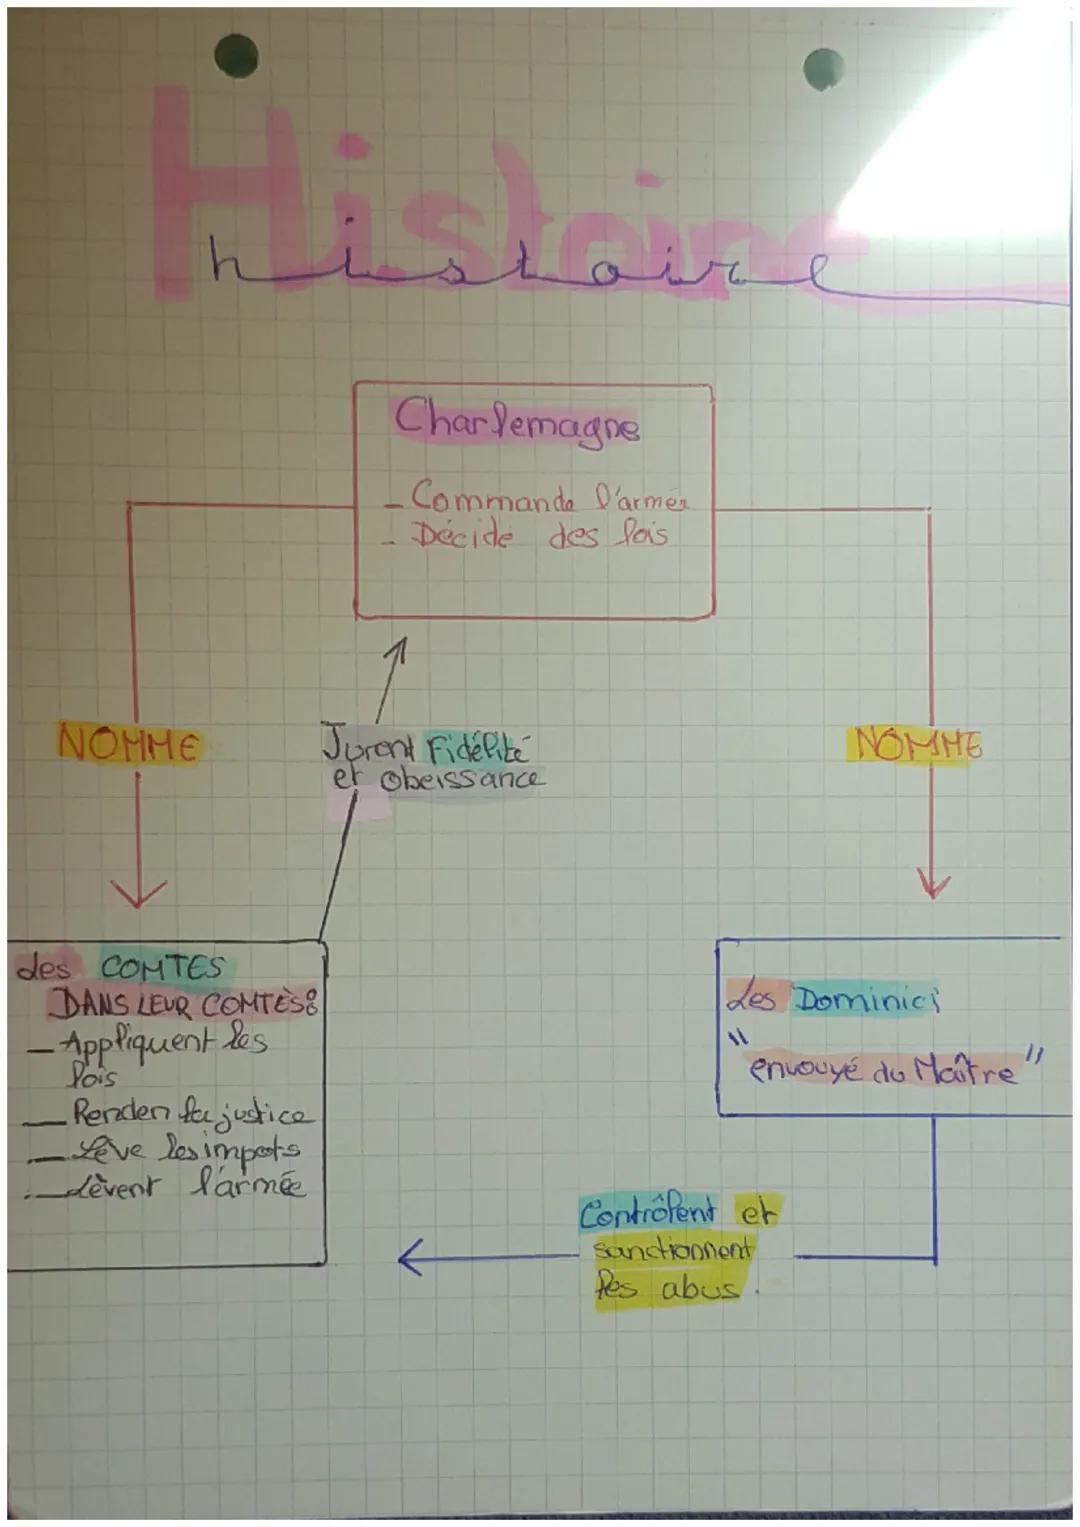 Histoire
histoire
Charlemagne
- Commande l'armée
- Décide des lois
NOMME
Jurent Fidélité
et obeissance
NOMME
des COMTES
DANS LEUR COMTÈS:
- Appliquent les
lois
- Renden la justice
- Lève les impots
- Lèvent l'armée
Les Dominici
"envouyé du Maître"
Contrôlent et
sanctionnent
les abus.